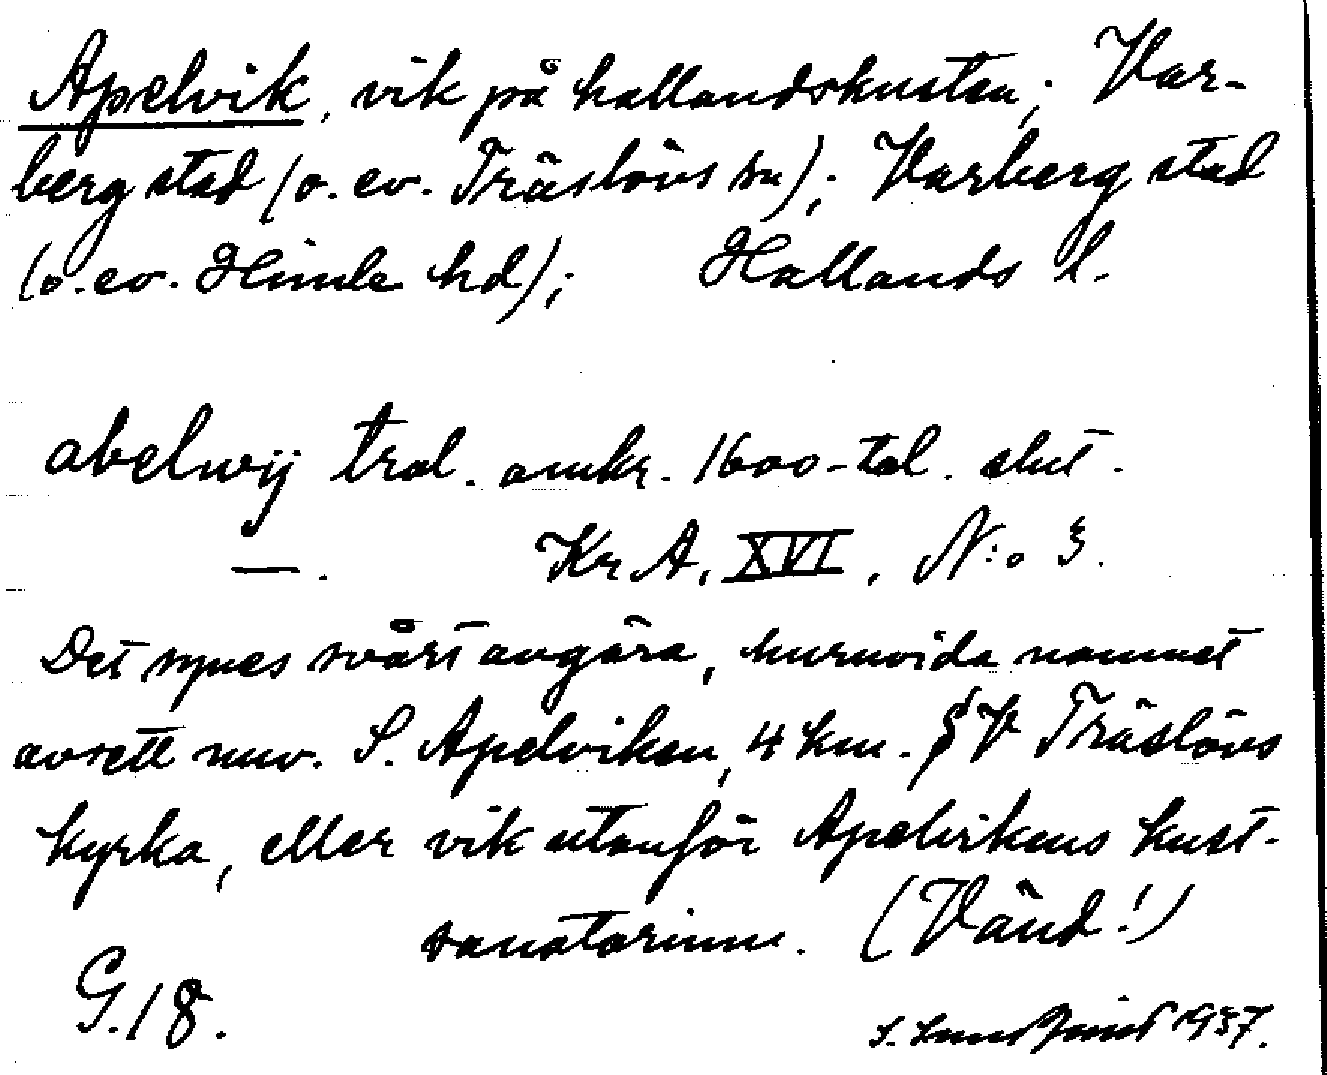 Apelvik, vik på hallandskusten; Var-
berg stad (o. ev. Träslövs sn); Varberg stad
(o. ev. Himle hd); Hallands l.
abelwij trol. omkr. 1600-tal. slut.
—. Kr A, XVI, N:o 3.
Det synes svårt avgöra, huruvida namnet
avsett nuv. S. Apelviken, 4 km. SV Träslövs
kyrka, eller vik utanför Apelvikens kust-
sanatorium. (Vänd!)
G. 18.
S. 1937.